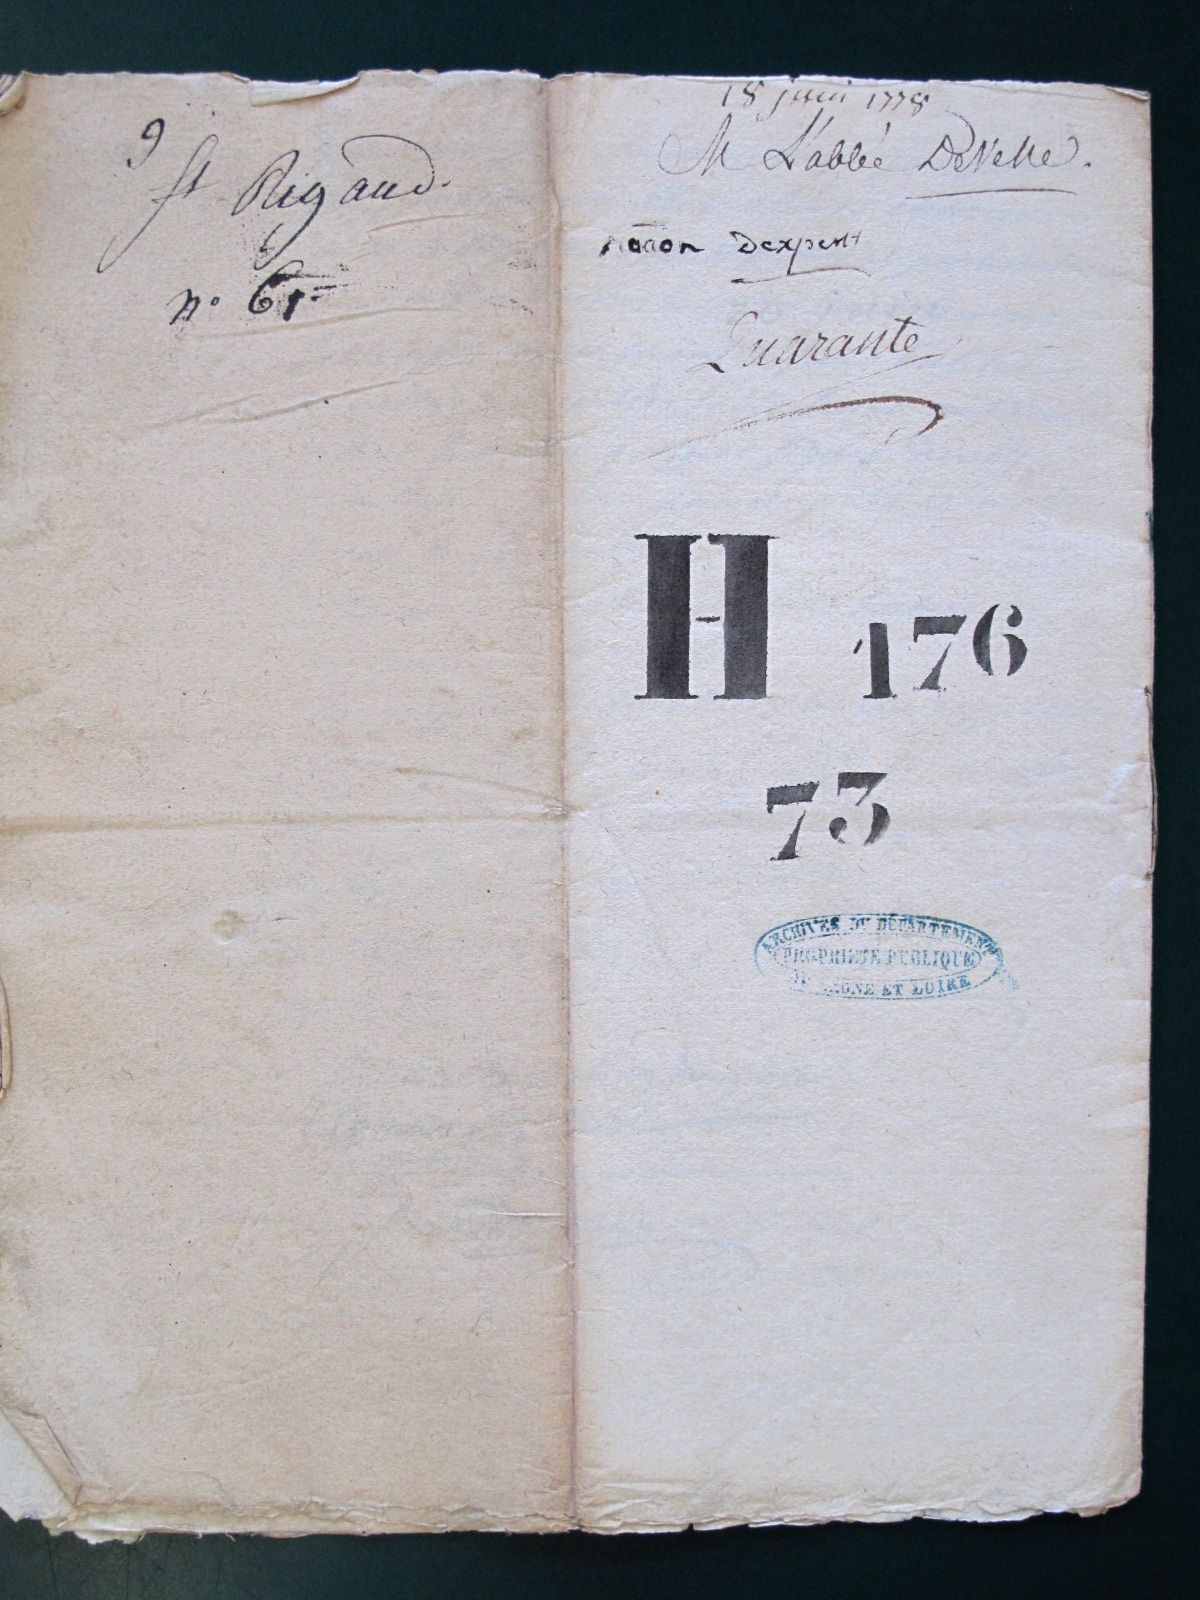 9
St Rigaud.
n° 61
18 juin 1778
M L'abbé DeVelle.
naōon Dexpert
Quarante
H 176
73
ARCHIVES DU DÉPARTEMENT
PROPRIÉTÉ PUBLIQUE
DE SAÔNE ET LOIRE